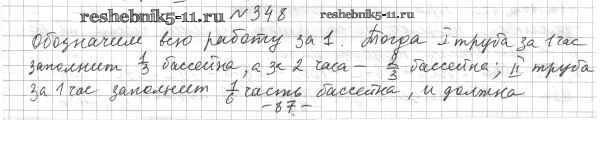 reshebnik5-11.ru № 348 reshebnik5-11.ru
Обозначим всю работу за 1. Тогда I труба за 1 час
заполнит 1/3 бассейна, а за 2 часа – 2/3 бассейна; II труба
за 1 час заполнит 1/6 часть бассейна, и должна
– 87 –